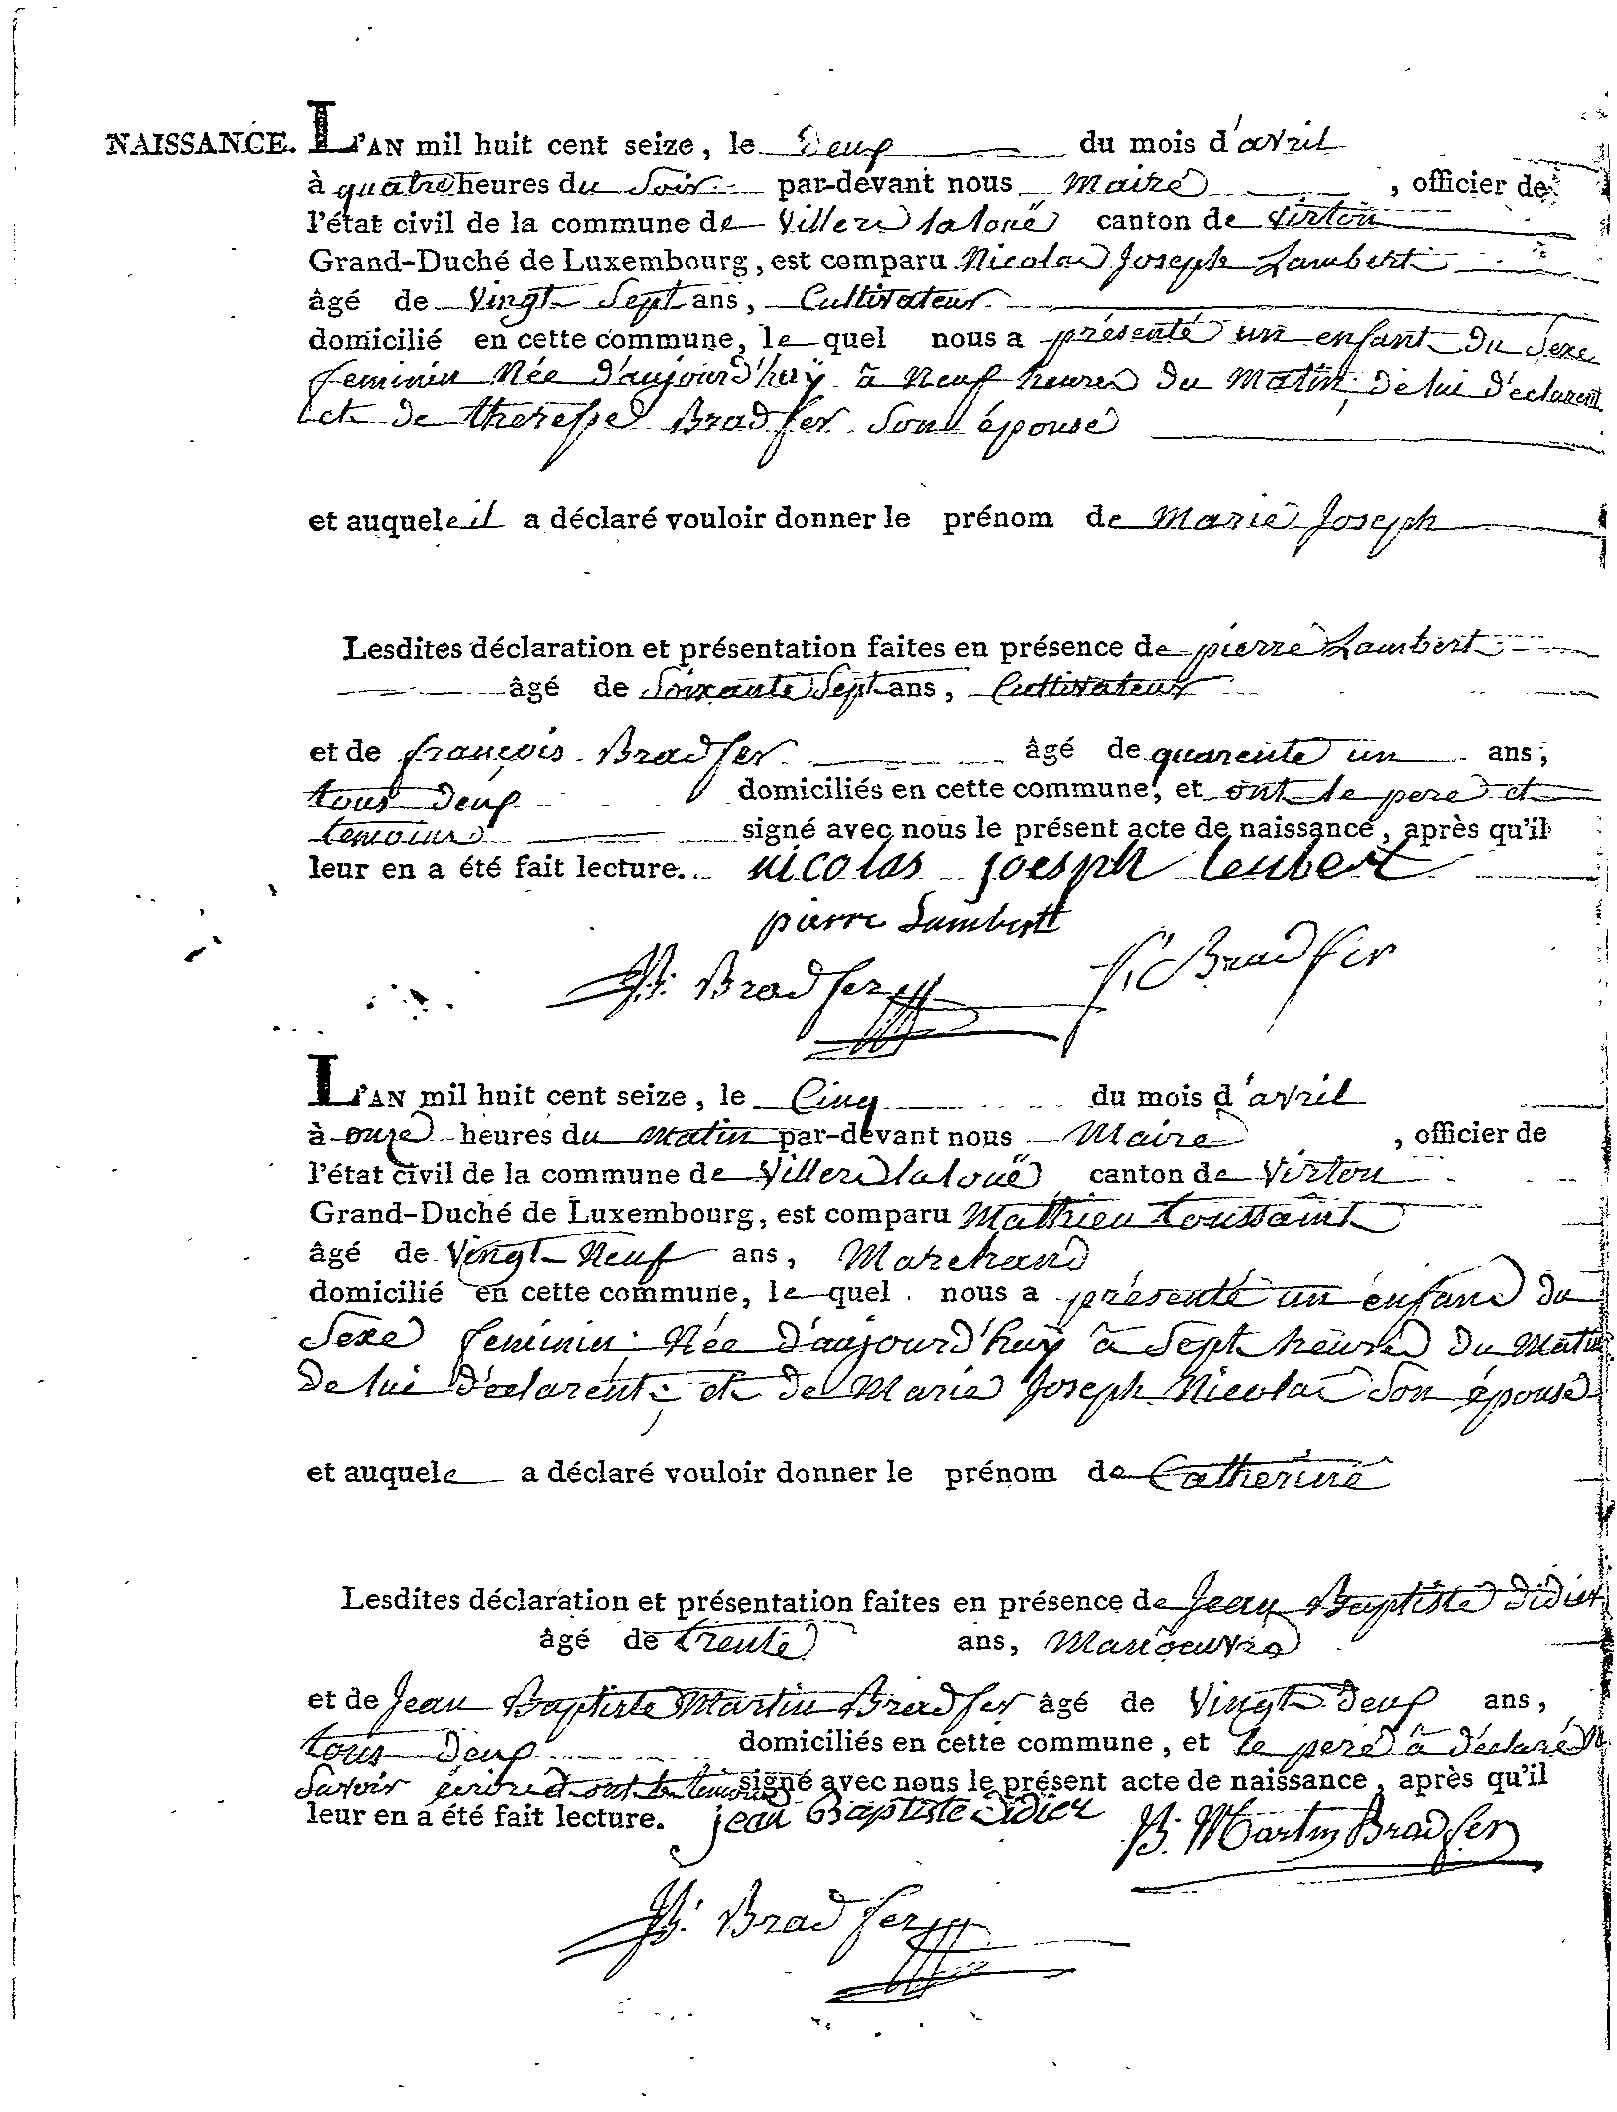 NAISSANCE. L'AN mil huit cent seize, le Deux du mois d'avril
à quatre heures du Soir par-devant nous Maire, officier de
l'état civil de la commune de Villers laloue canton de Virton
Grand-Duché de Luxembourg, est comparu Nicolas Joseph Lambert
âgé de Vingt Sept ans, Cultivateur
domicilié en cette commune, le quel nous a présenté un enfant du Sexe
feminin Née d'aujourd'huy à Neuf heures du Matin, de lui déclarent
et de theresse Bradfer Son épouse
et auquele il a déclaré vouloir donner le prénom de Marie Joseph
Lesdites déclaration et présentation faites en présence de pierre Lambert
âgé de Soixante Sept ans, Cultivateur
et de françois Bradfer âgé de quarente un ans,
tous deux domiciliés en cette commune, et ont le pere et
temoins signé avec nous le présent acte de naissance, après qu'il
leur en a été fait lecture. nicolas joesph leubert
pierre Lambertt
JB. Bradfer f. Bradfer
L'AN mil huit cent seize, le Cinq du mois d'avril
à onze heures du Matin par-devant nous Maire, officier de
l'état civil de la commune de Villers laloue canton de Virton
Grand-Duché de Luxembourg, est comparu Mathieu toussaint
âgé de Vingt Neuf ans, Marchand
domicilié en cette commune, le quel nous a présenté un énfant du
Sexe feminin Née d'aujourd'huy à Sept heures du Matin
de lui déclarent, et de Marie Joseph Nicolas Son épouse
et auquele a déclaré vouloir donner le prénom de Catherine
Lesdites déclaration et présentation faites en présence de Jean Baptiste didier
âgé de trente ans, Manoeuvre
et de Jean Baptiste Martin Bradfer âgé de Vingt deux ans,
tous deux domiciliés en cette commune, et le pere à déclaré N
Savoir écrire et ont les temoins signé avec nous le présent acte de naissance, après qu'il
leur en a été fait lecture. jean Baptiste didier JB. Martin Bradfer
JB. Bradfer